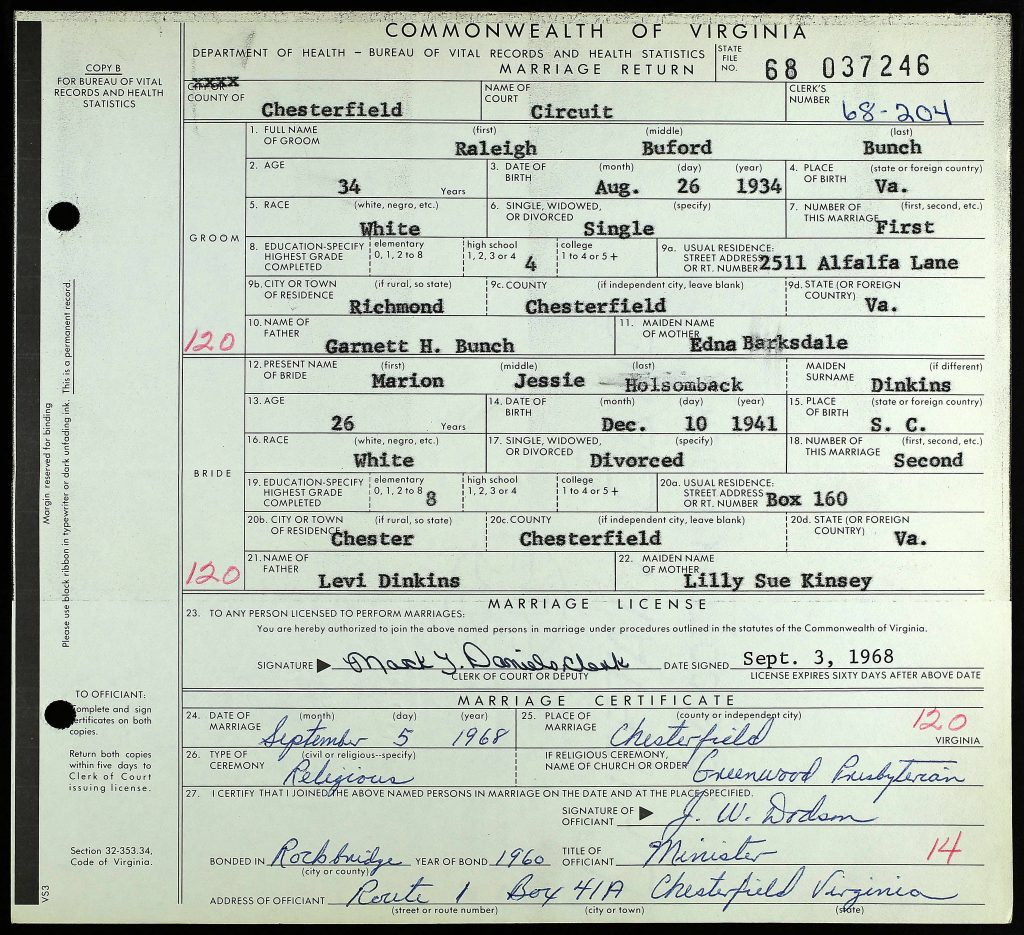 COMMONWEALTH OF VIRGINIA
DEPARTMENT OF HEALTH – BUREAU OF VITAL RECORDS AND HEALTH STATISTICS
MARRIAGE RETURN
STATE FILE NO. 68 037246
COPY B
FOR BUREAU OF VITAL
RECORDS AND HEALTH
STATISTICS
COUNTY OF Chesterfield
NAME OF COURT Circuit
CLERK'S NUMBER 68-204
GROOM
1. FULL NAME OF GROOM (first) Raleigh (middle) Buford (last) Bunch
2. AGE 34 Years
3. DATE OF BIRTH (month) Aug. (day) 26 (year) 1934
4. PLACE OF BIRTH (state or foreign country) Va.
5. RACE (white, negro, etc.) White
6. SINGLE, WIDOWED, OR DIVORCED (specify) Single
7. NUMBER OF THIS MARRIAGE (first, second, etc.) First
8. EDUCATION-SPECIFY HIGHEST GRADE COMPLETED elementary 0, 1, 2 to 8 high school 1, 2, 3 or 4 4 college 1 to 4 or 5 +
9a. USUAL RESIDENCE: STREET ADDRESS OR RT. NUMBER 2511 Alfalfa Lane
9b. CITY OR TOWN OF RESIDENCE (if rural, so state) Richmond
9c. COUNTY (if independent city, leave blank) Chesterfield
9d. STATE (OR FOREIGN COUNTRY) Va.
120
10. NAME OF FATHER Garnett H. Bunch
11. MAIDEN NAME OF MOTHER Edna Barksdale
BRIDE
12. PRESENT NAME OF BRIDE (first) Marion (middle) Jessie (last) Holsomback
MAIDEN SURNAME (if different) Dinkins
13. AGE 26 Years
14. DATE OF BIRTH (month) Dec. (day) 10 (year) 1941
15. PLACE OF BIRTH (state or foreign country) S. C.
16. RACE (white, negro, etc.) White
17. SINGLE, WIDOWED, OR DIVORCED (specify) Divorced
18. NUMBER OF THIS MARRIAGE (first, second, etc.) Second
19. EDUCATION-SPECIFY HIGHEST GRADE COMPLETED elementary 0, 1, 2 to 8 8 high school 1, 2, 3 or 4 college 1 to 4 or 5 +
20a. USUAL RESIDENCE: STREET ADDRESS OR RT. NUMBER Box 160
20b. CITY OR TOWN OF RESIDENCE (if rural, so state) Chester
20c. COUNTY (if independent city, leave blank) Chesterfield
20d. STATE (OR FOREIGN COUNTRY) Va.
120
21. NAME OF FATHER Levi Dinkins
22. MAIDEN NAME OF MOTHER Lilly Sue Kinsey
MARRIAGE LICENSE
23. TO ANY PERSON LICENSED TO PERFORM MARRIAGES:
You are hereby authorized to join the above named persons in marriage under procedures outlined in the statutes of the Commonwealth of Virginia.
SIGNATURE ▶ Mack Y. Daniels, Clerk DATE SIGNED Sept. 3, 1968
CLERK OF COURT OR DEPUTY LICENSE EXPIRES SIXTY DAYS AFTER ABOVE DATE
MARRIAGE CERTIFICATE
24. DATE OF MARRIAGE (month) September (day) 5 (year) 1968
25. PLACE OF MARRIAGE (county or independent city) Chesterfield 120 VIRGINIA
26. TYPE OF CEREMONY (civil or religious--specify) Religious
IF RELIGIOUS CEREMONY, NAME OF CHURCH OR ORDER Greenwood Presbyterian
27. I CERTIFY THAT I JOINED THE ABOVE NAMED PERSONS IN MARRIAGE ON THE DATE AND AT THE PLACE SPECIFIED.
SIGNATURE OF OFFICIANT ▶ J. W. Dodson
BONDED IN Rockbridge (city or county) YEAR OF BOND 1960 TITLE OF OFFICIANT Minister 14
ADDRESS OF OFFICIANT Route 1 Box 41A Chesterfield Virginia
(street or route number) (city or town) (state)
Margin reserved for binding
Please use black ribbon in typewriter or dark unfading ink. This is a permanent record.
TO OFFICIANT:
Complete and sign
certificates on both
copies.
Return both copies
within five days to
Clerk of Court
issuing license.
Section 32-353.34,
Code of Virginia.
VS3